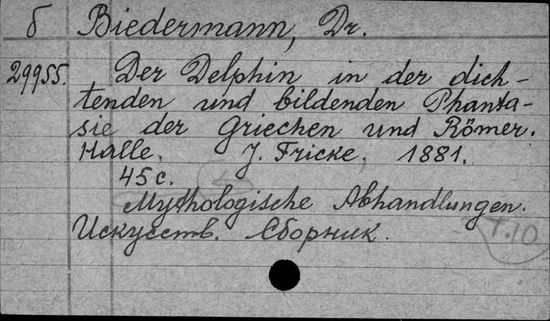 б Biedermann, Dr.
29955. Der Delphin in der dich-
tenden und bildenden Phanta-
sie der Griechen und Römer.
Halle. J. Fricke. 1881.
45 с.
Mythologische Abhandlungen.
Искусств. Сборник.
Т.10